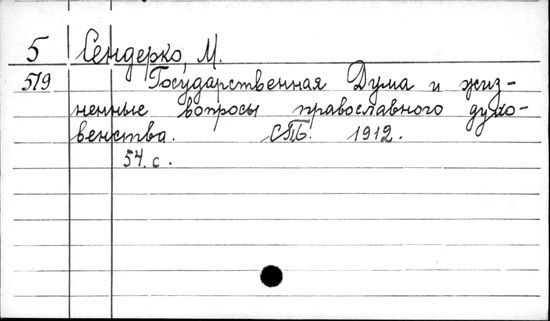 5 Сендерко, М.
519 Государственная Дума и жиз-
ненные вопросы православного духо-
венства. СПБ. 1912.
54. с.